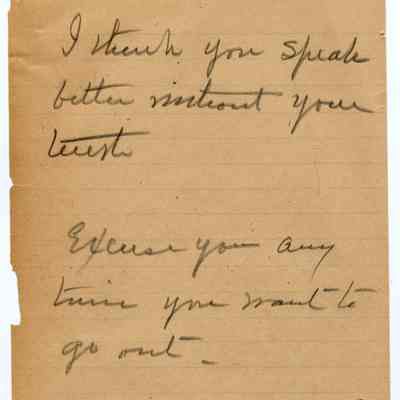 I think you speak
better without your
teeth
Excuse you any
time you want to
go out –